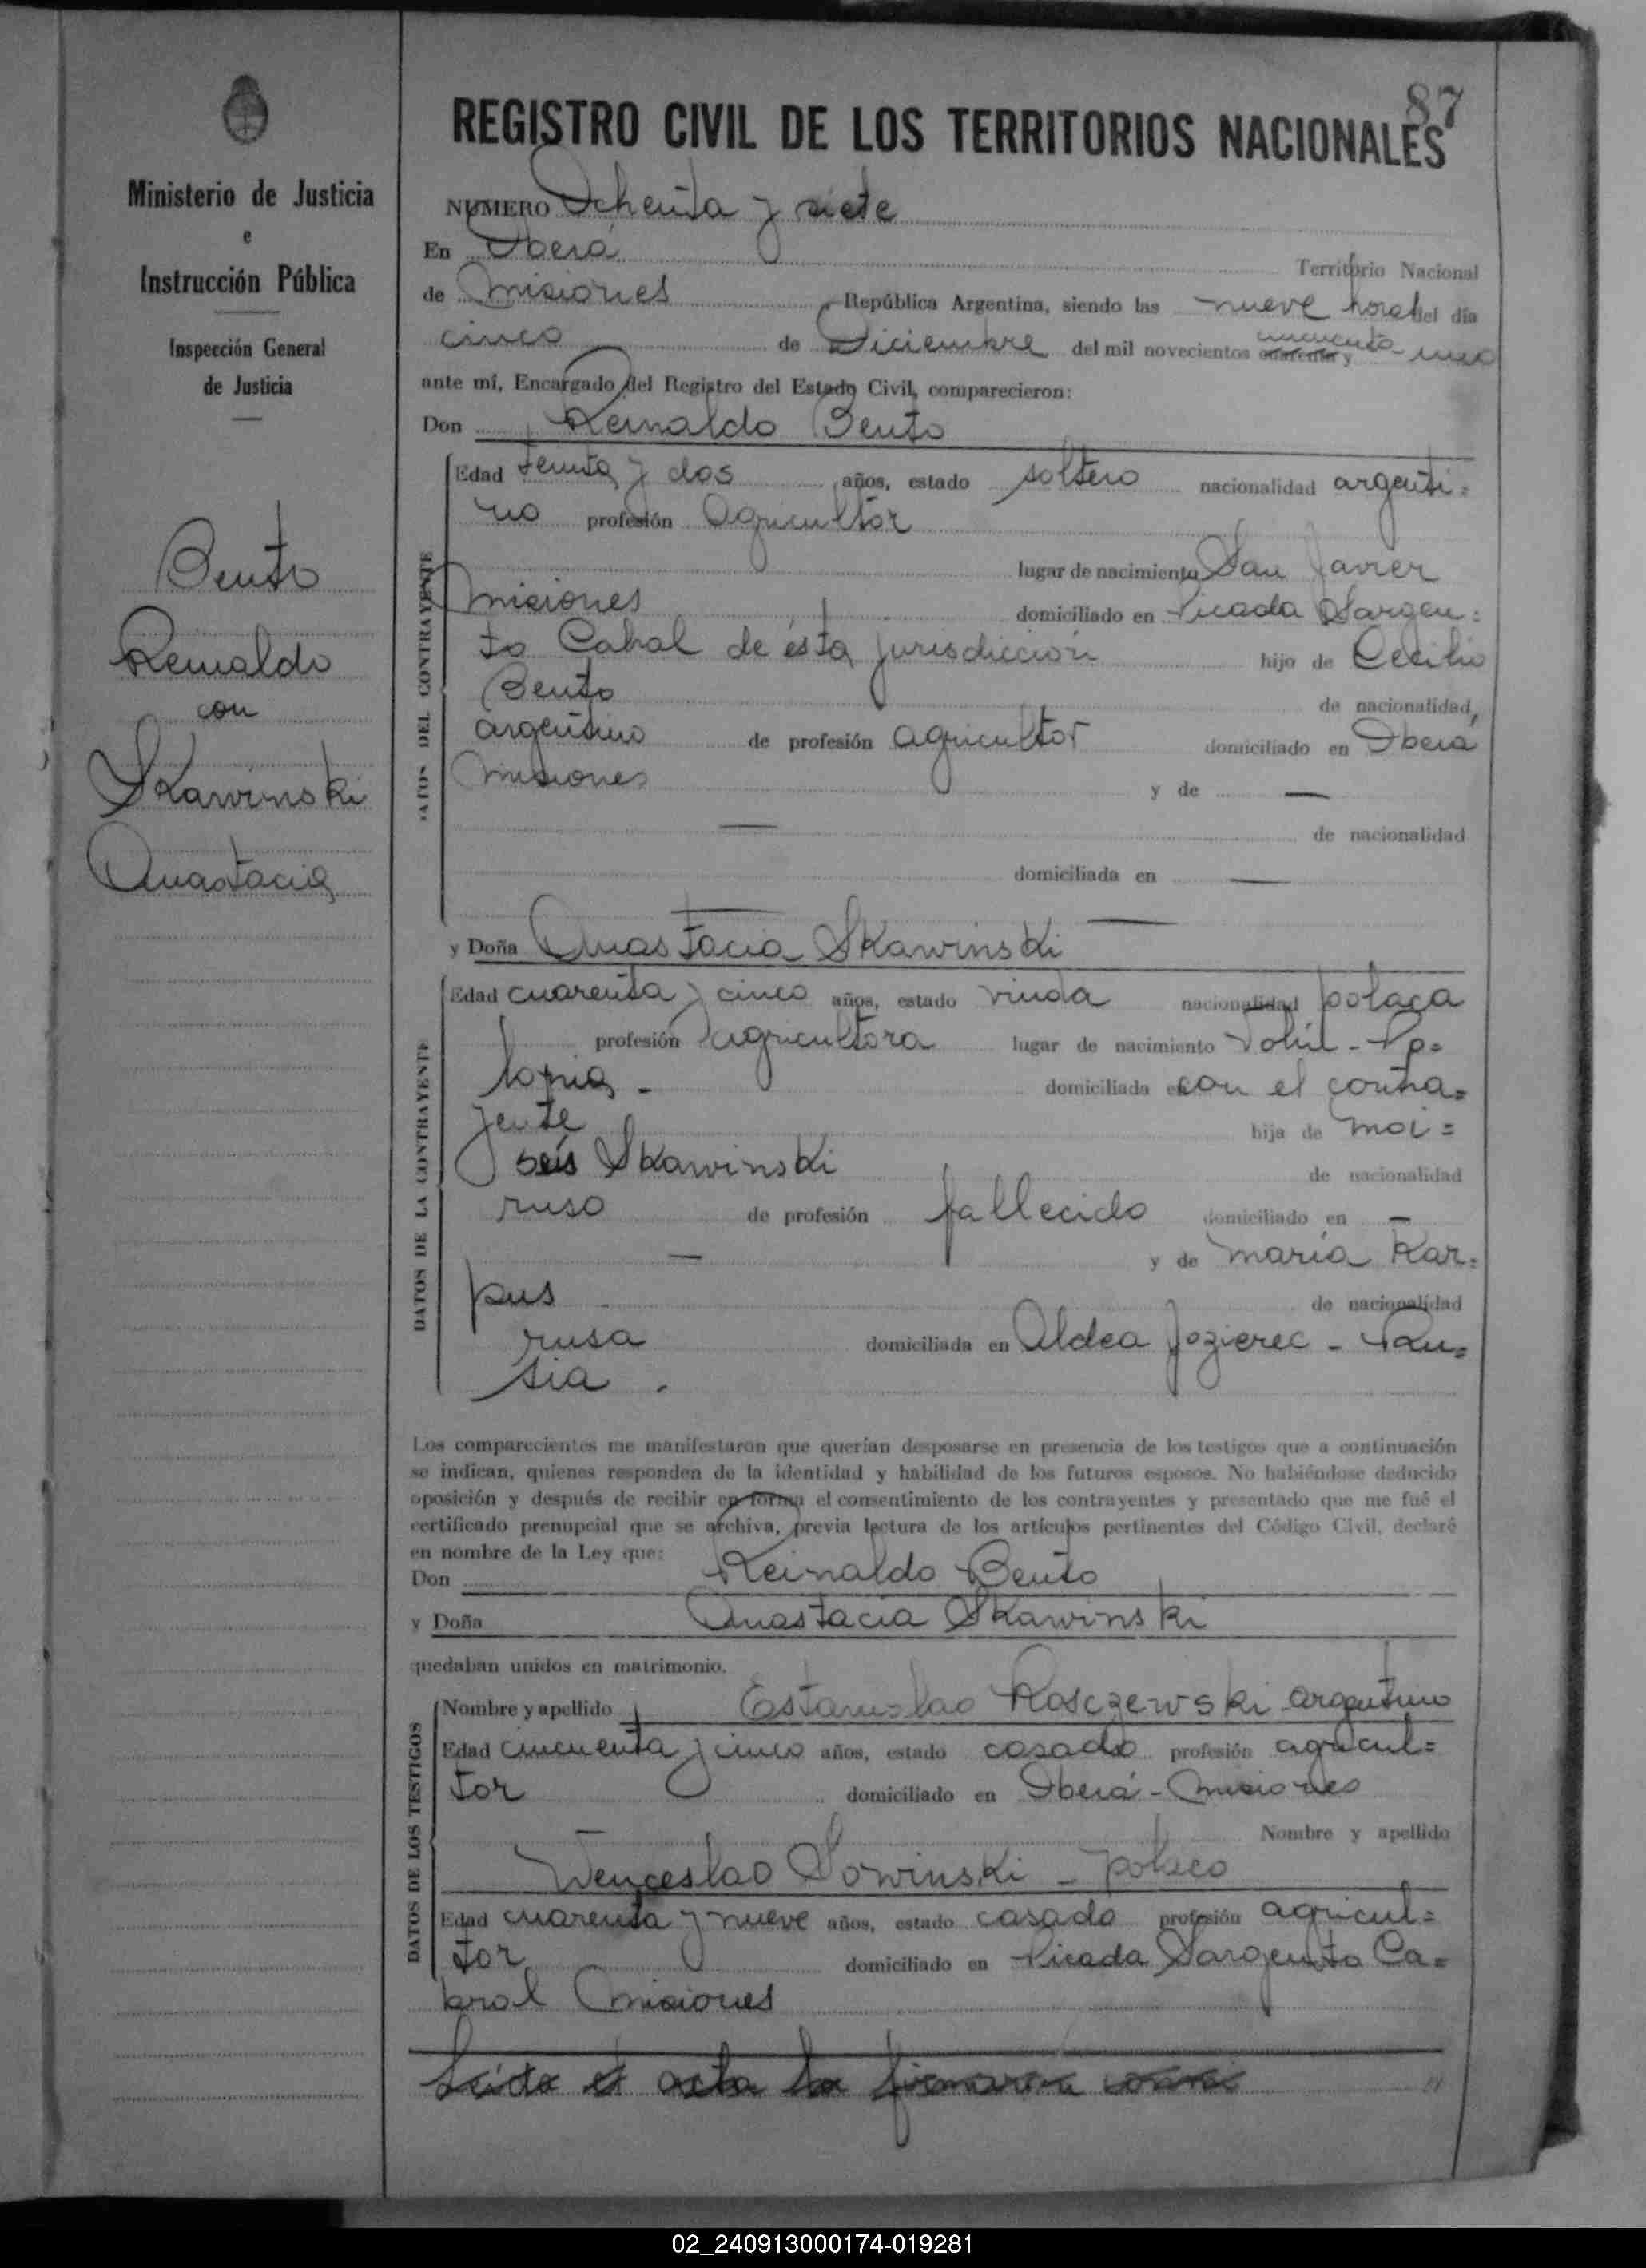 Ministerio de Justicia
e
Instrucción Pública
Inspección General
de Justicia
Bento
Reinaldo
con
Skawinski
Anastacia
87
REGISTRO CIVIL DE LOS TERRITORIOS NACIONALES
NUMERO Ochenta y siete
En Oberá Territorio Nacional
de Misiones República Argentina, siendo las nueve horas del día
cincuenta
cinco de Diciembre del mil novecientos cuarenta y uno
ante mí, Encargado del Registro del Estado Civil, comparecieron:
Don Reinaldo Bento
DATOS DEL CONTRAYENTE
Edad treinta y dos años, estado soltero nacionalidad argenti=
no profesión Agricultor
lugar de nacimiento San Javier
Misiones domiciliado en Picada Sargen=
to Cabral de ésta jurisdicción hijo de Cecilio
Bento de nacionalidad,
argentino de profesión agricultor domiciliado en Oberá
Misiones y de —
— de nacionalidad
domiciliada en —
y Doña Anastacia Skawinski
DATOS DE LA CONTRAYENTE
Edad cuarenta y cinco años, estado viuda nacionalidad polaca
profesión agricultora lugar de nacimiento - Po=
lonia - domiciliada en con el contra=
yente hija de Moi=
sés Skawinski de nacionalidad
ruso de profesión fallecido domiciliado en —
— y de María Kar=
pus de nacionalidad
rusa domiciliada en Aldea Jozierec - Ru=
sia.
Los comparecientes me manifestaron que querían desposarse en presencia de los testigos que a continuación
se indican, quienes responden de la identidad y habilidad de los futuros esposos. No habiéndose deducido
oposición y después de recibir en forma el consentimiento de los contrayentes y presentado que me fué el
certificado prenupcial que se archiva, previa lectura de los artículos pertinentes del Código Civil, declaré
en nombre de la Ley que:
Don Reinaldo Bento
y Doña Anastacia Skawinski
quedaban unidos en matrimonio.
DATOS DE LOS TESTIGOS
Nombre y apellido Estanislao Rosczewski argentino
Edad cincuenta y cinco años, estado casado profesión agricul=
tor domiciliado en Oberá - Misiones
— Nombre y apellido
Wenceslao Sowinski - polaco
Edad cuarenta y nueve años, estado casado profesión agricul=
tor domiciliado en Picada Sargento Ca=
bral Misiones
Leída el acta la firmaron
02_240913000174-019281